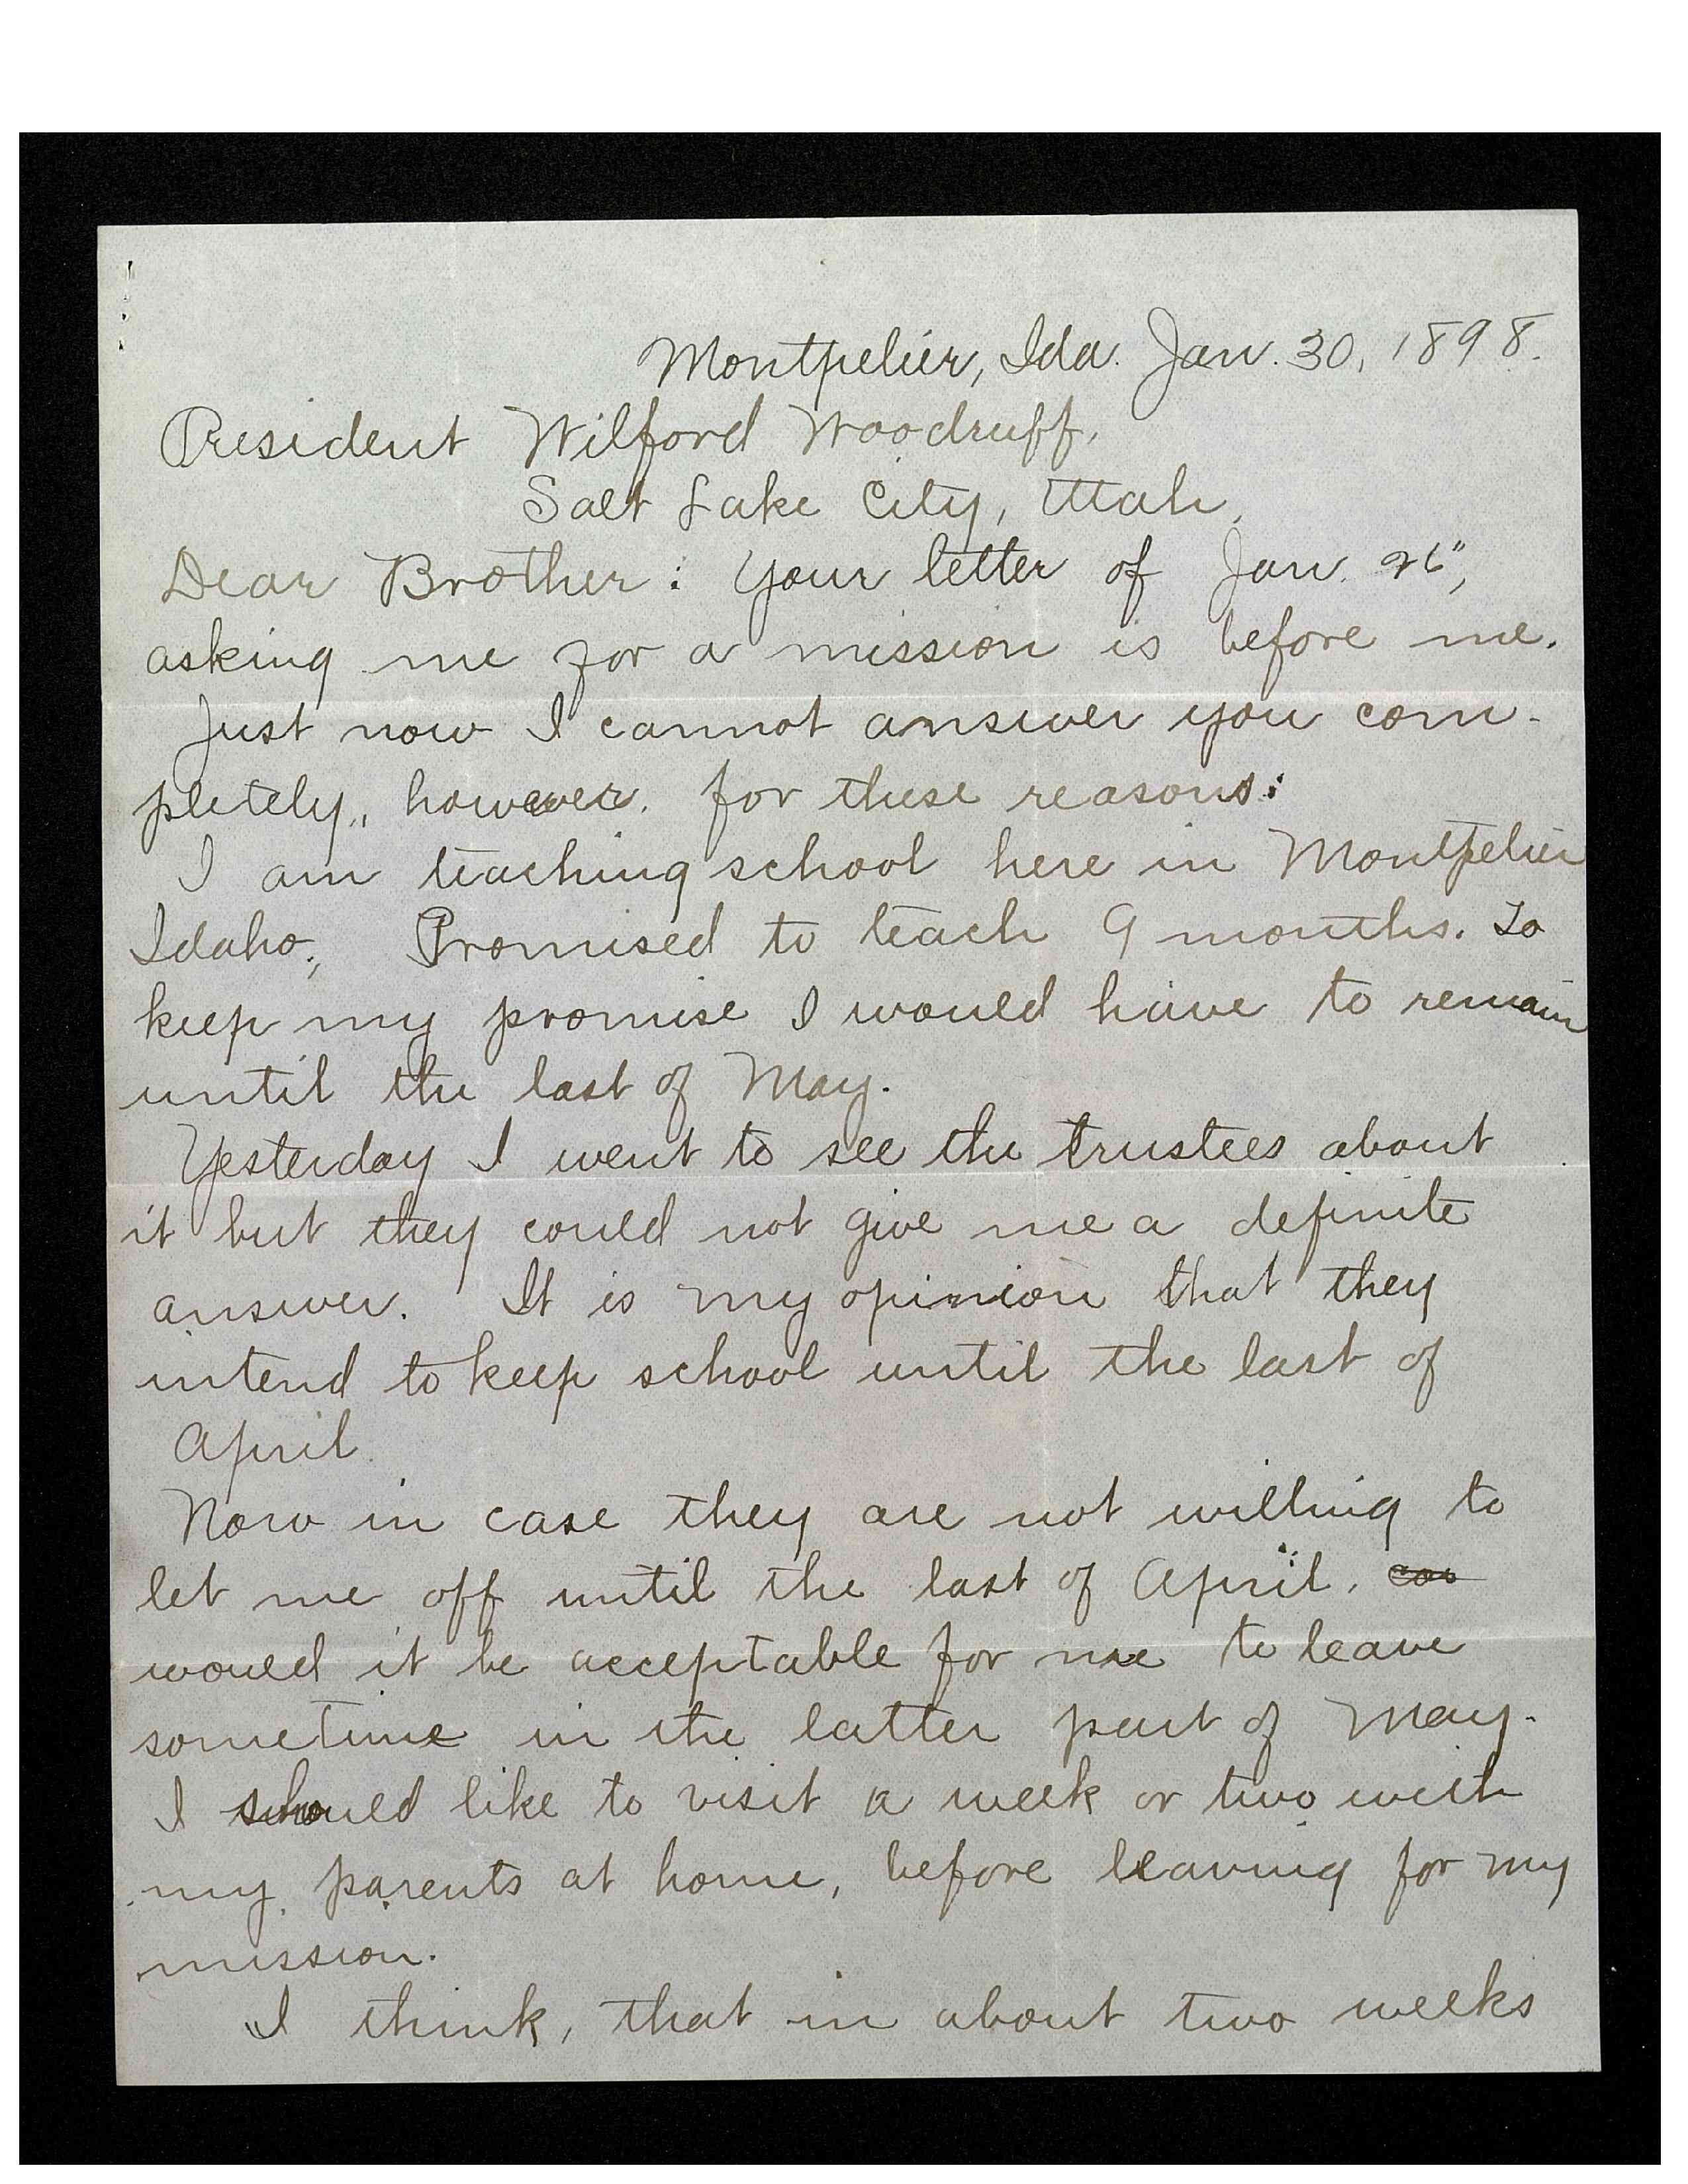 Montpelier, Ida. Jan. 30, 1898.
President Wilford Woodruff,
Salt Lake City, Utah,
Dear Brother: Your letter of Jan. 26",
asking me for a mission is before me.
Just now I cannot answer you com-
pletely,, however, for these reasons:
I am teaching school here in Montpelier
Idaho; Promised to teach 9 months. To
keep my promise I would have to remain
until the last of May.
Yesterday I went to see the trustees about
it but they could not give me a definite
answer. It is my opinion that they
intend to keep school until the last of
April.
Now in case they are not willing to
let me off until the last of April,
would it be acceptable for me to leave
sometime in the latter part of May.
I should like to visit a week or two with
my parents at home, before leaving for my
mission.
I think, that in about two weeks